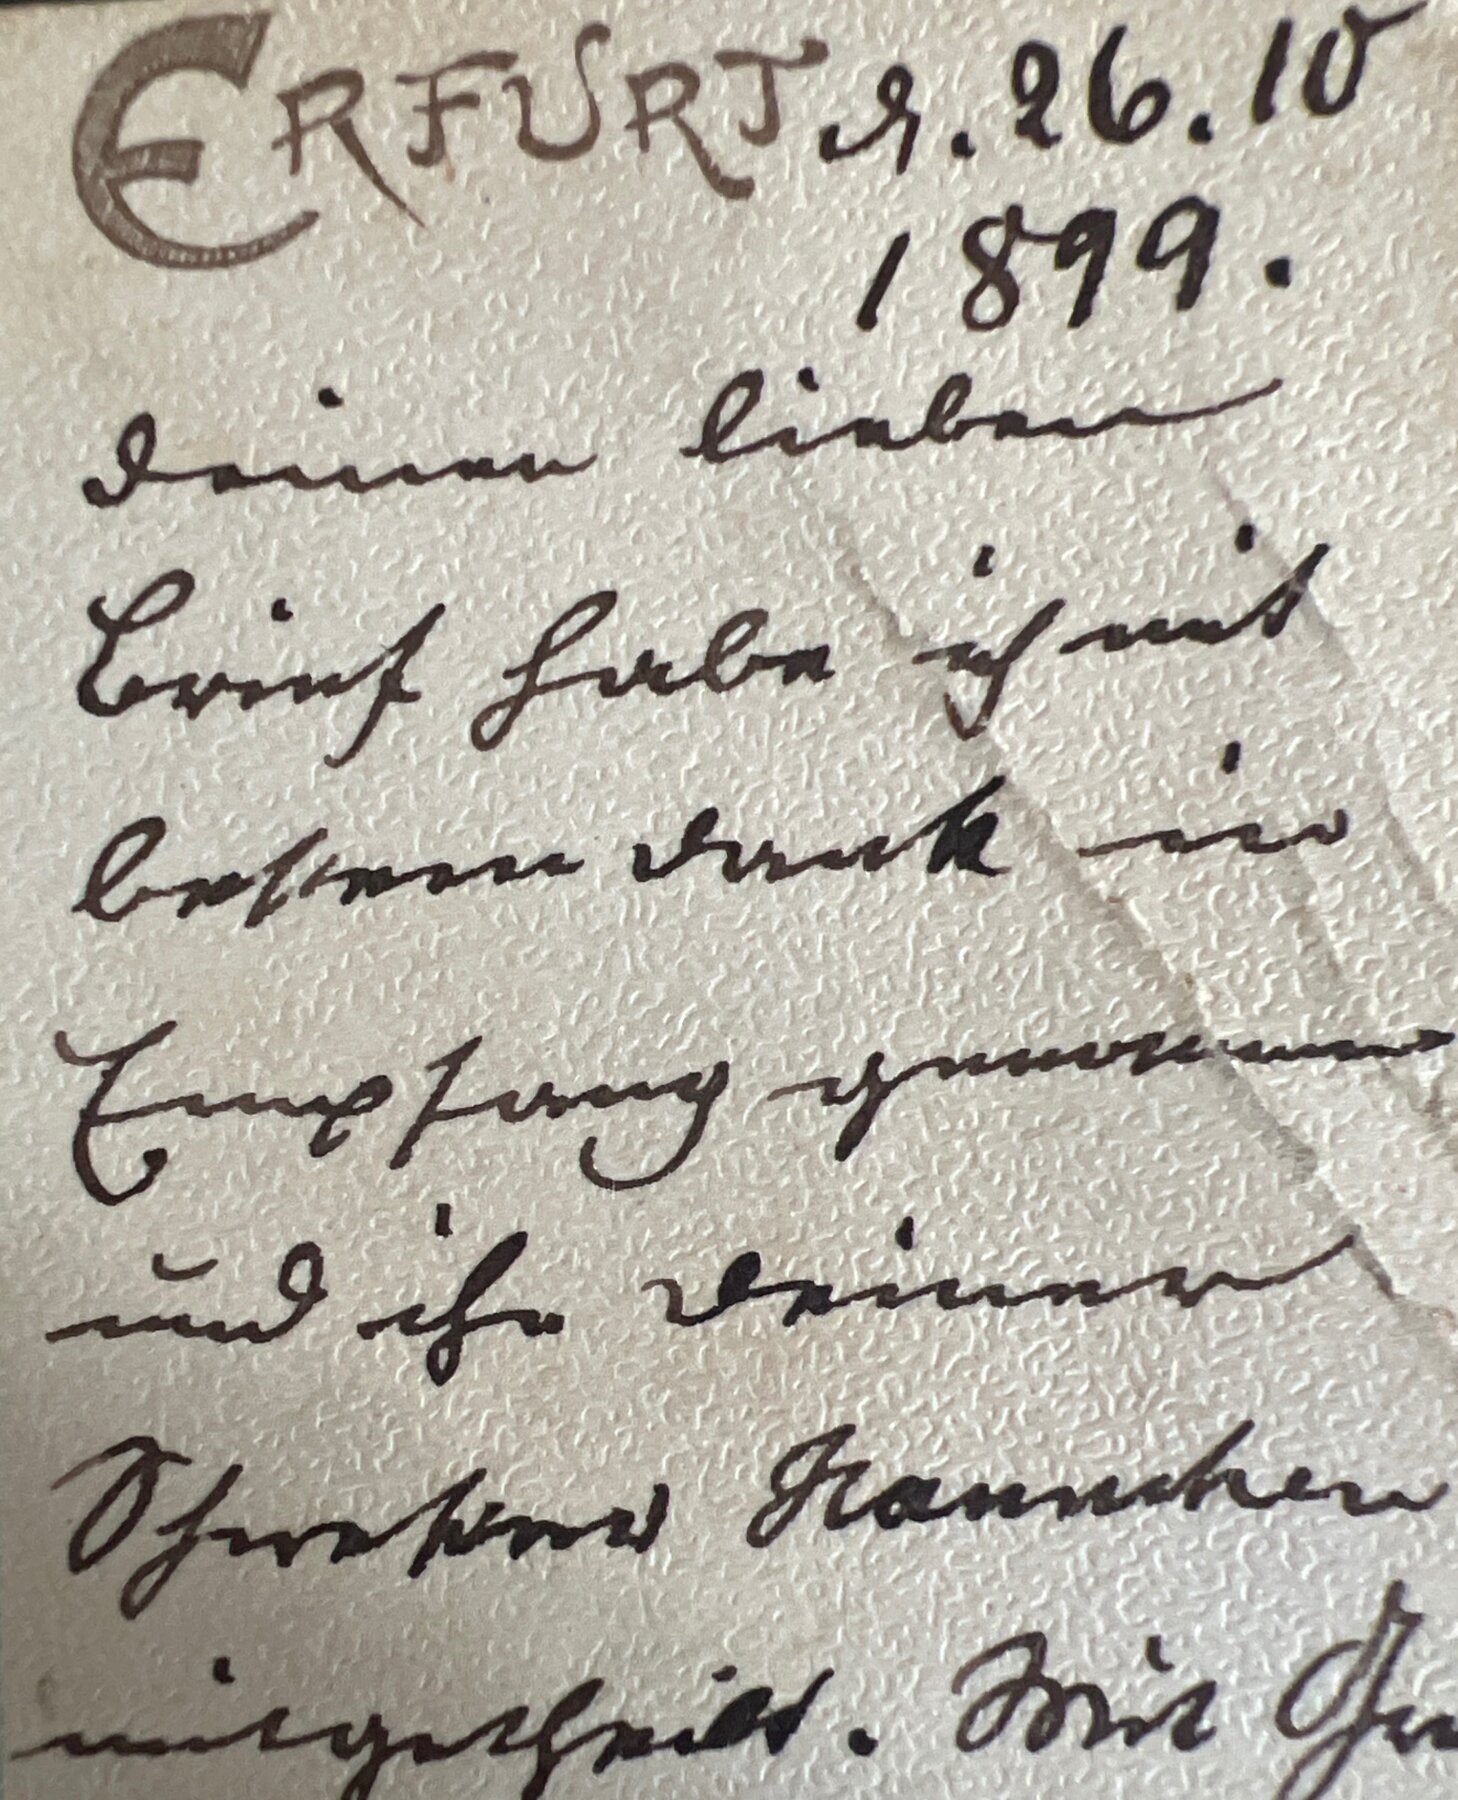 ERFURT d. 26. 10
1899.
Deinen lieben
Brief habe ich mit
bestem Dank in
Empfang genommen
und ihn Deiner
Schwester Hannchen
mitgetheilt. Mit